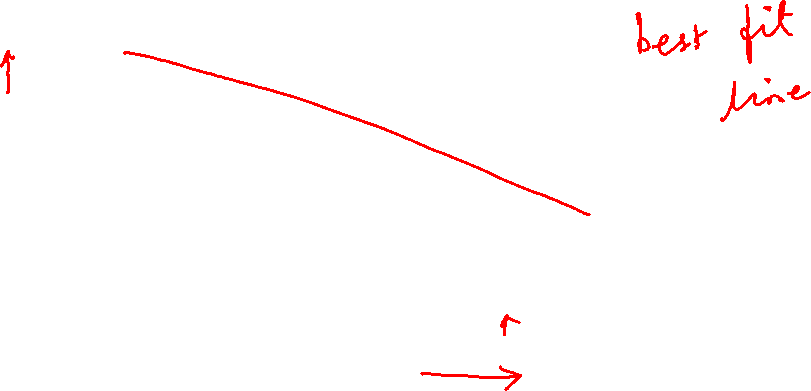 best fit
line
r